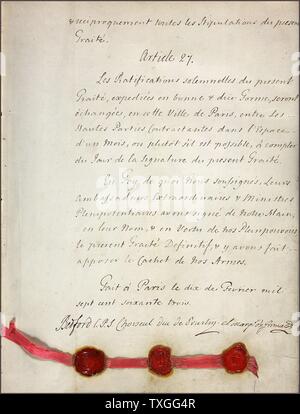 & réciproquement toutes les Stipulations du présent
Traité.
Article 27.
Les Ratifications solemnelles du présent
Traité, expediées en bonne & due Forme, seront
échangées, en cette Ville de Paris, entre les
Hautes Parties Contractantes dans l'Espace
d'un Mois, ou plutôt s'il est possible, à compter
du Jour de la Signature du présent Traité.
En Foy de quoi Nous soussignés, Leurs
Ambassadeurs Extraordinaires & Ministres
Plenipotentiaires avons signé de Notre Main,
en leur Nom, & en Vertu de nos Pleinpouvoirs,
le présent Traité Définitif, & y avons fait
apposer le Cachet de nos Armes.
Fait à Paris le dix de Fevrier mil
sept cent soixante trois.
Bedford C.P.S. Choiseul duc de Praslin el Marqs de Grimaldi
alamy
Image ID: TXGG4R
www.alamy.com